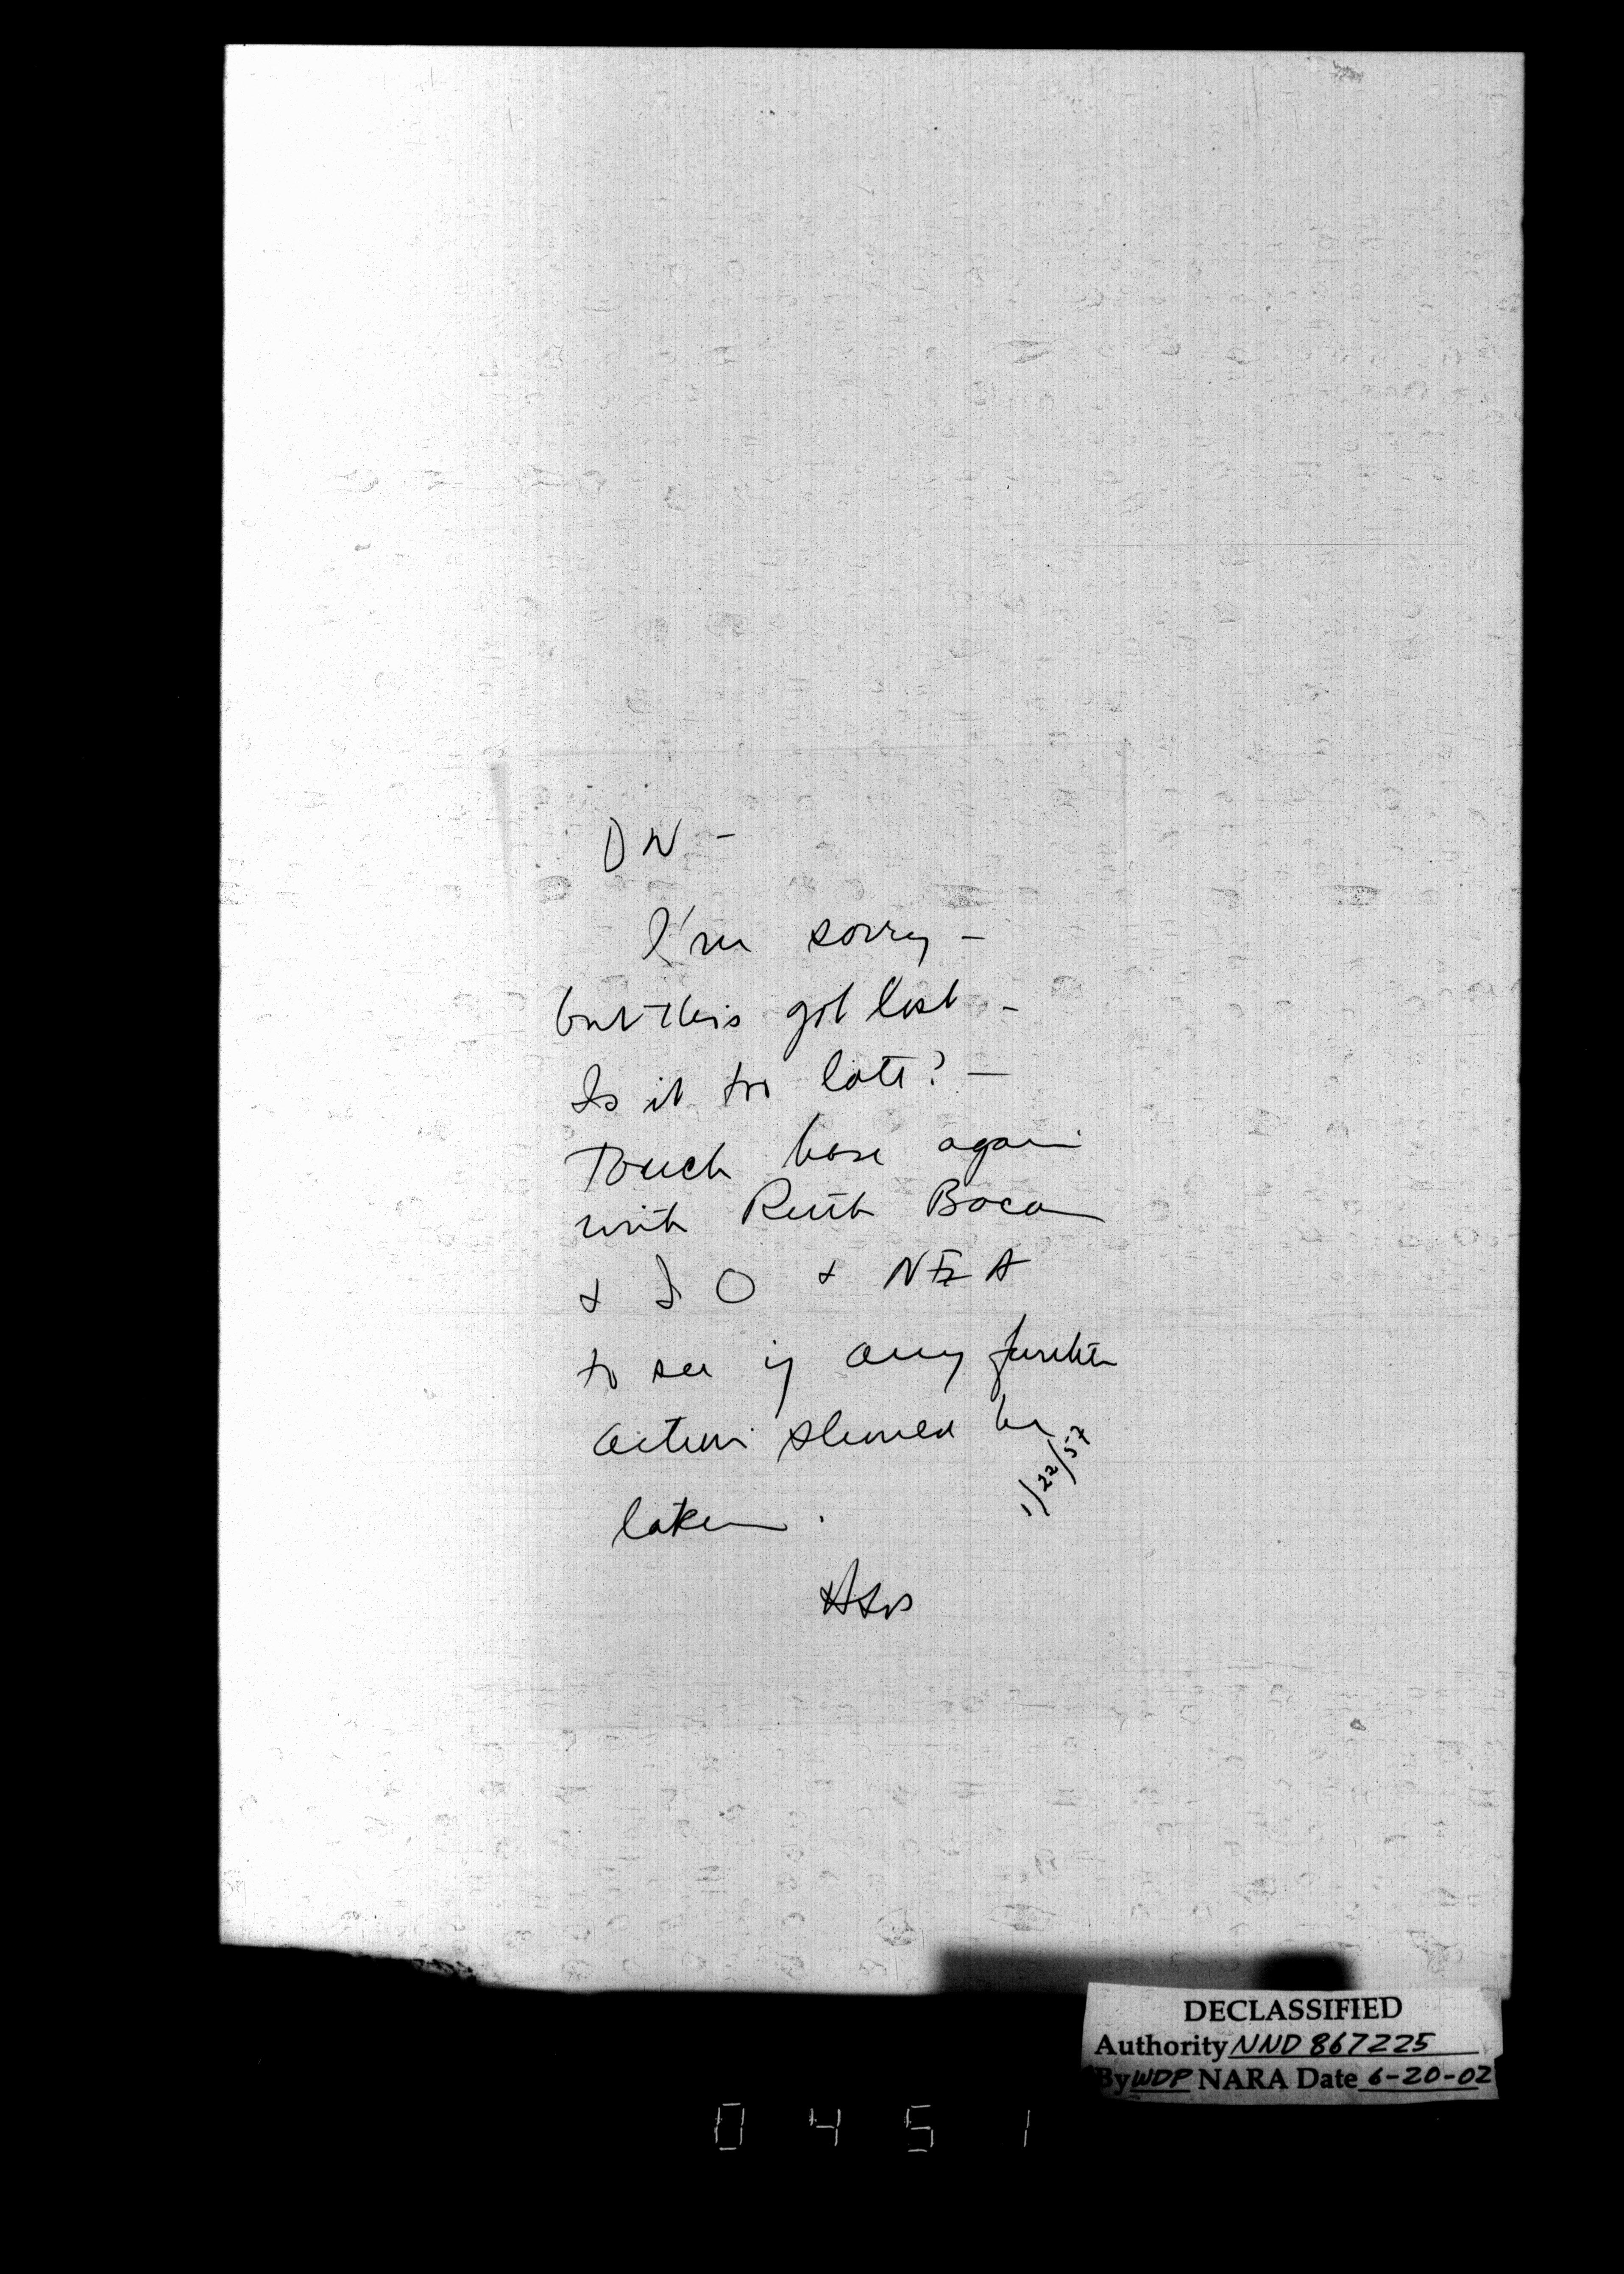 DN -
I'm sorry -
but this got lost -
Is it too late? -
Touch base again
with Ruth Bacon
+ IO + NEA
to see if any further
action should be
taken.
1/22/57
DECLASSIFIED
Authority NND 867225
By WDP NARA Date 6-20-02
0451